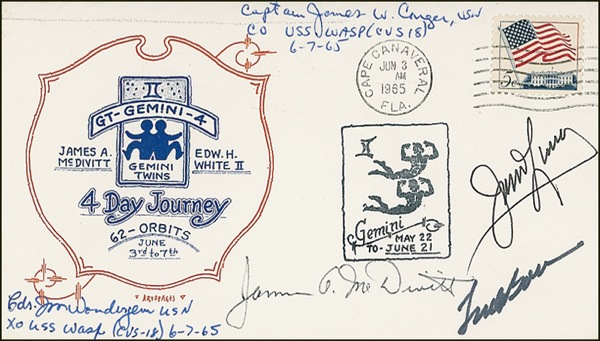 Captain James W. Conger, USN
CO USS WASP (CVS 18)
6-7-65
CAPE CANAVERAL
JUN 3
AM
1965
FLA.
5¢
GT-GEMINI-4
JAMES A. McDIVITT
GEMINI TWINS
EDW. H. WHITE II
4 Day Journey
62-ORBITS
JUNE
3rd to 7th
ARTOPAGES
Gemini
MAY 22
TO-JUNE 21
James A. McDivitt
Cdr.
USN
XO USS Wasp (CVS-18) 6-7-65